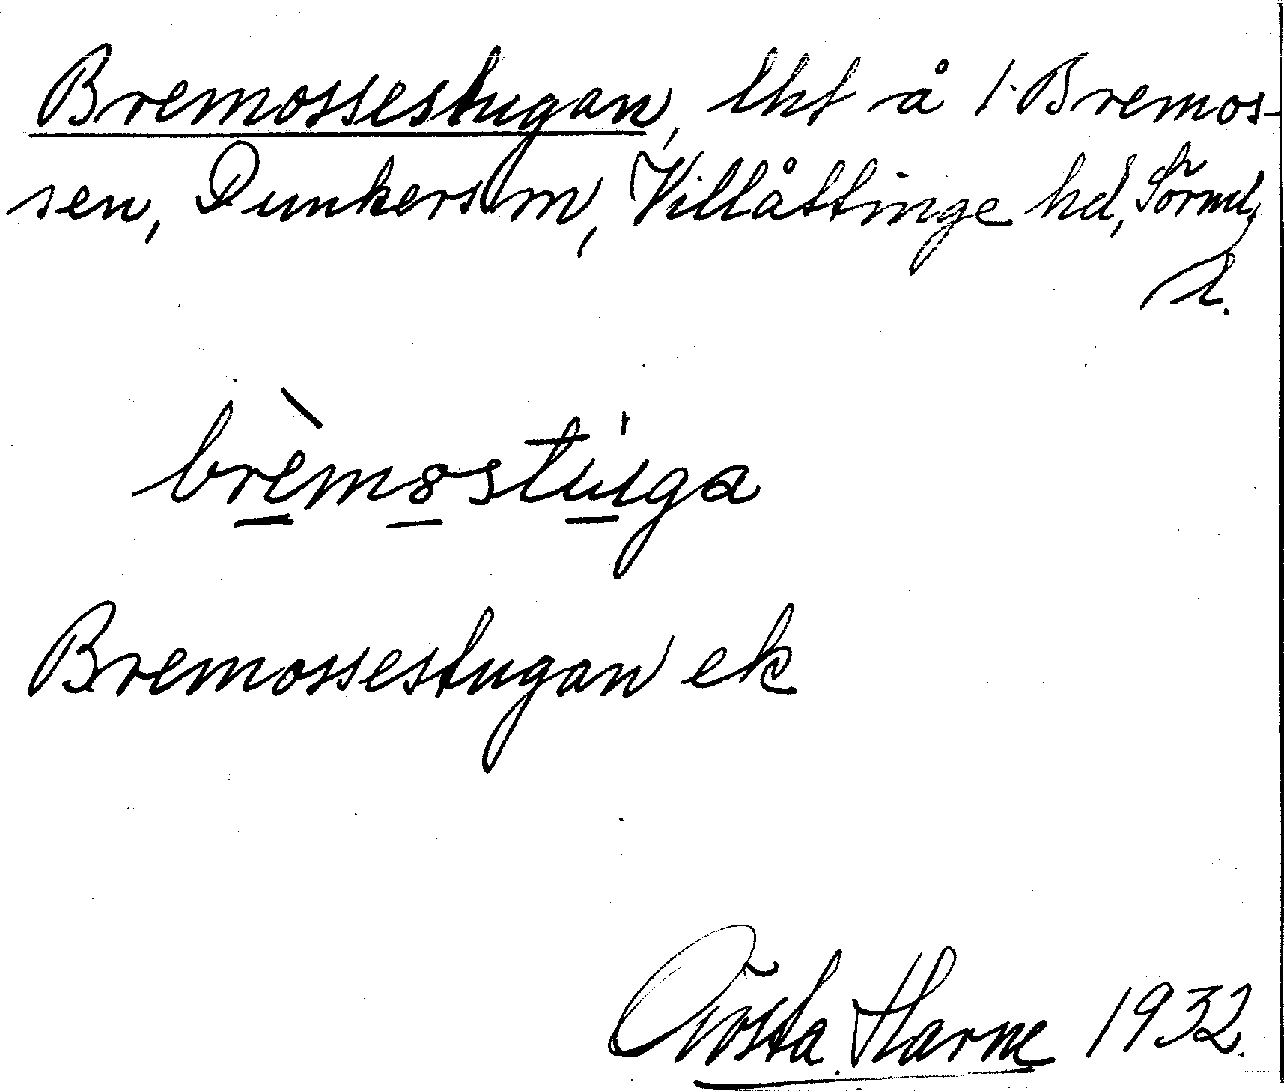 Bremossestugan, lht å 1. Bremos-
sen, Dunkers sn, Villåttinge hd, Sörml.
l.
brèmostu̇ga
Bremossestugan ek
Gösta Harne 1932.